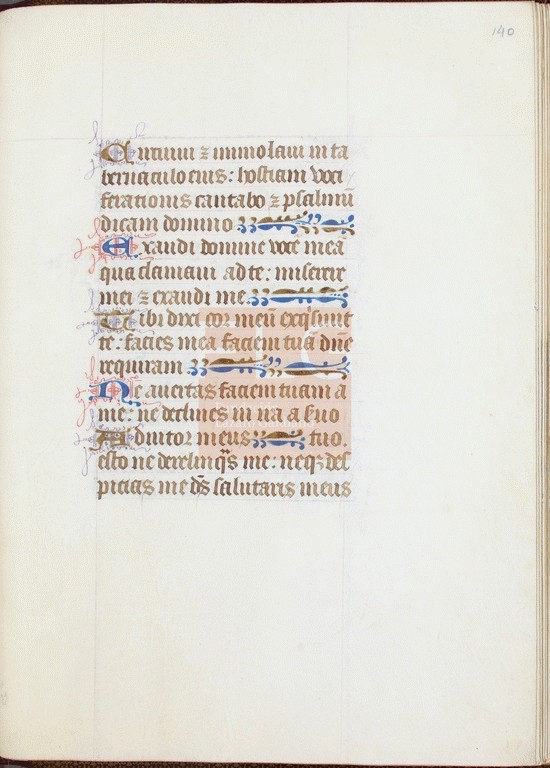 140
Circuiui ⁊ immolaui in ta
bernaculo eius: hostiam voci
ferationis cantabo ⁊ psalmū
dicam domino
Exaudi domine vocē meā
qua clamaui ad te: miserere
mei ⁊ exaudi me
Tibi dixit cor meū exq̄siuit
te: facies mea faciem tuā dn̄e
requiram
Ne auertas faciem tuam a
me: ne declines in ira a seruo
Adiutor meus tuo.
esto ne derelinq̄s me: neqꝫ des
picias me dS̄ salutaris meus